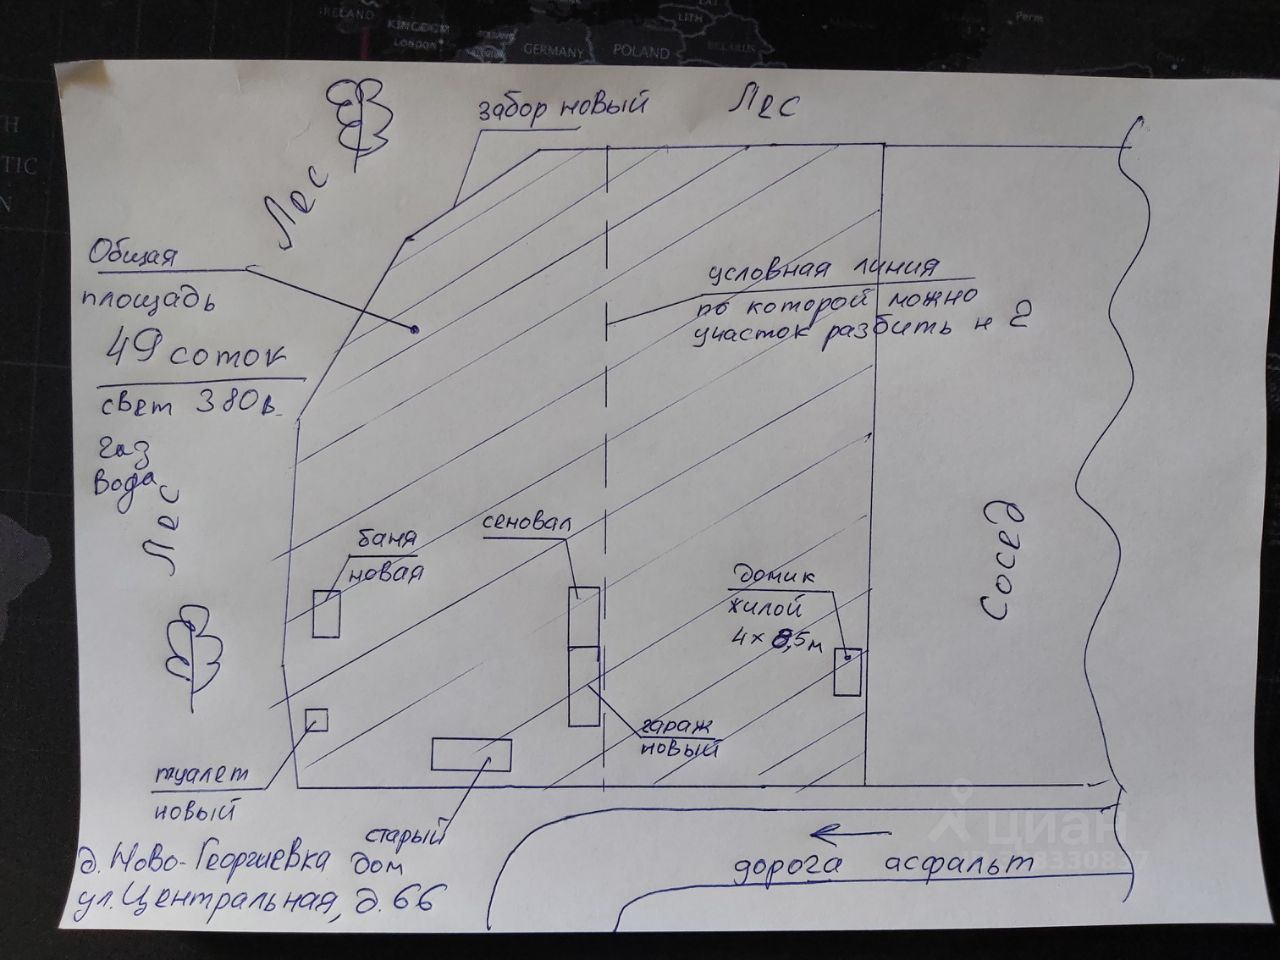 IRELAND
KINGDOM
LONDON
GERMANY
POLAND
BELARUS
LITH
Perm
TIC
забор новый
Лес
Лес
Общая
площадь
49 соток
свет 380в.
газ
вода
условная линия
по которой можно
участок разбить н 2
Лес
баня
новая
сеновал
домик
жилой
4х8,5м
Сосед
гараж
новый
туалет
новый
старый
дом
д. Ново-Георгиевка
ул. Центральная, д.66
дорога асфальт
циан